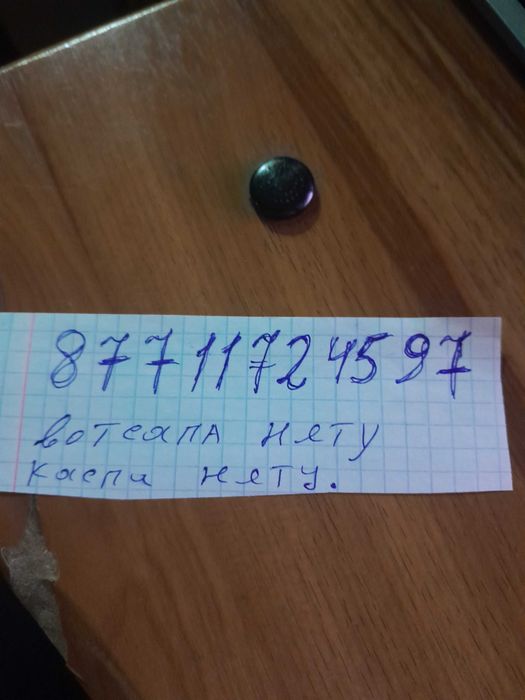 87711724597
вотсапа няту
каспи няту.